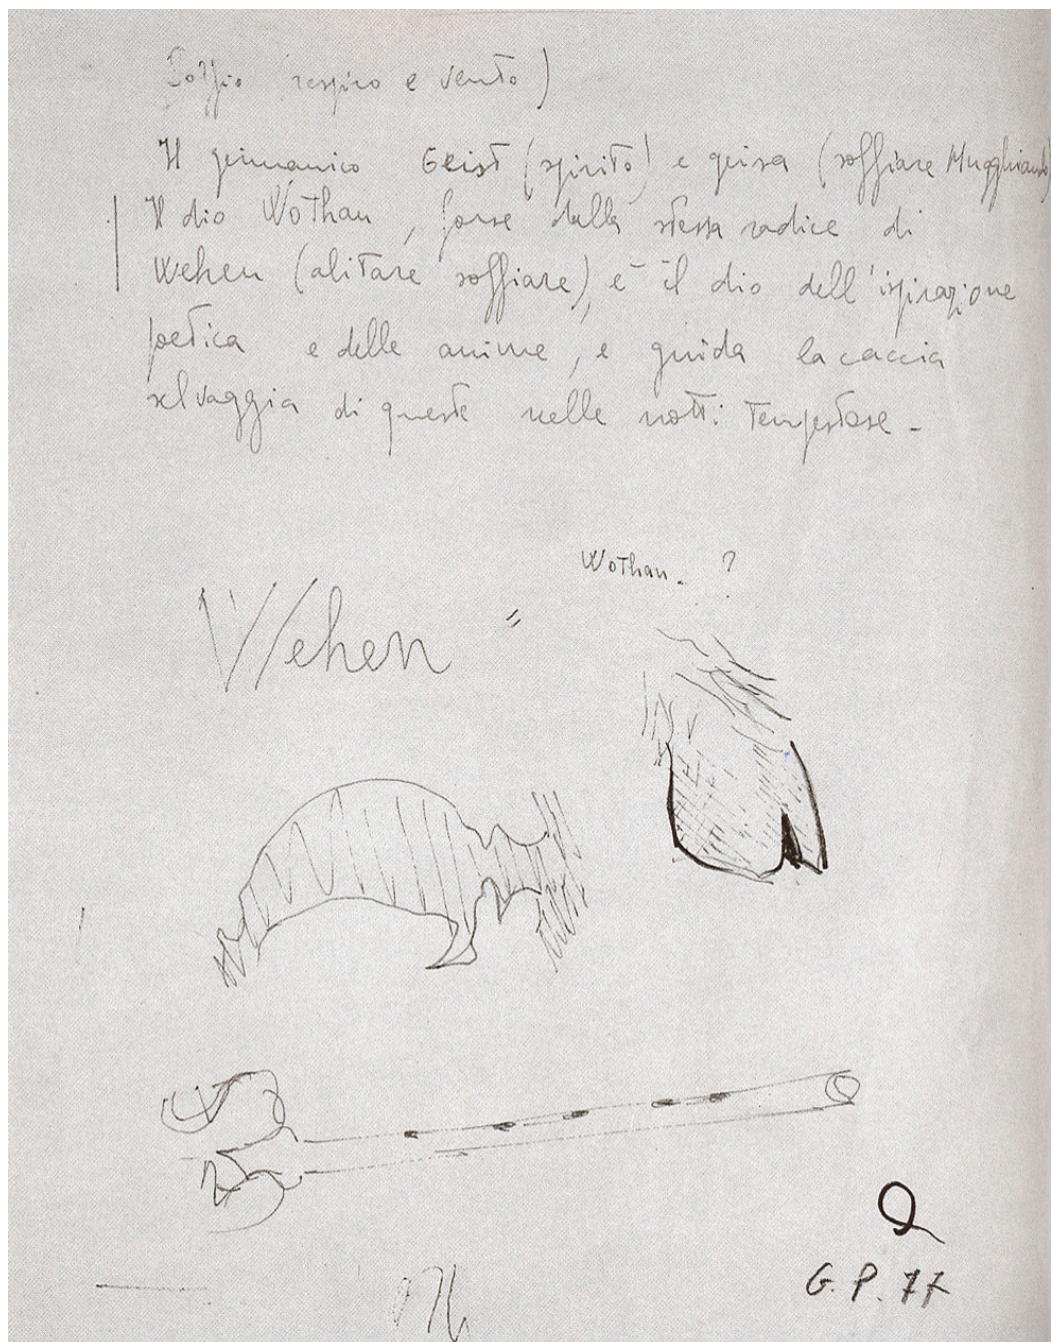 Soffio (respiro e vento)
Il germanico Geist (spirito) e geisa (soffiare Mugghiando)
Il dio Wothan, forse dalla stessa radice di
Wehen (alitare soffiare), è il dio dell'ispirazione
poetica e delle anime, e guida la caccia
selvaggia di queste nelle notti tempestose -
Wothan - ?
Wehen "
G. P. 77